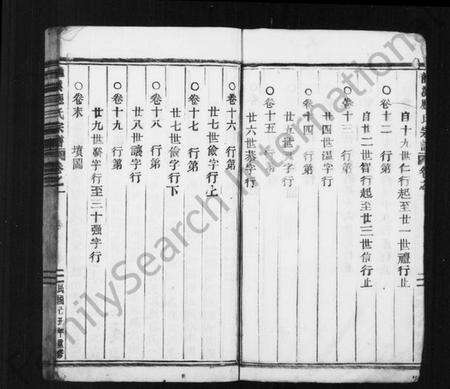 自十九世仁行起至廿一世禮行止
○卷十二 行第
自廿二世智行起至廿三世信行止
○卷十三 行第
廿四世溫字行
○卷十四 行第
廿五世良字行
○卷十五
廿六世恭字行
○卷十六 行第
廿七世儉字行上
○卷十七 行第
廿七世儉字行下
○卷十八 行第
廿八世讓字行
○卷十九 行第
廿九世字行至三十强字行
○卷末 墳圖
氏宗譜
民國年重修
FamilySearch International